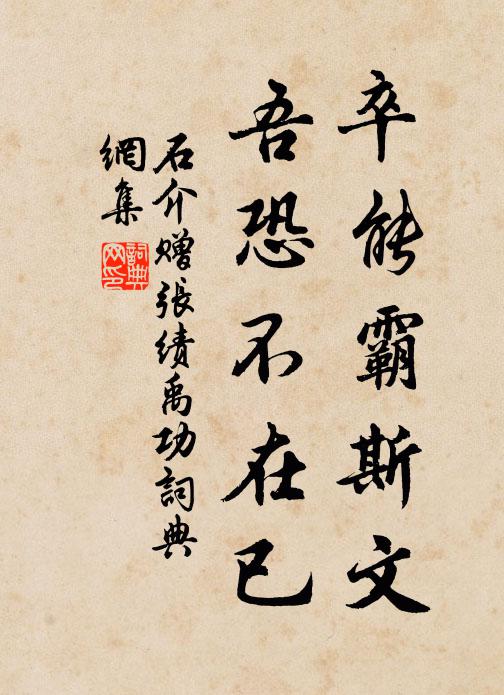 卒能霸斯文
吾恐不在已
石介赠張績禹功詞典
網集
詞典
网印